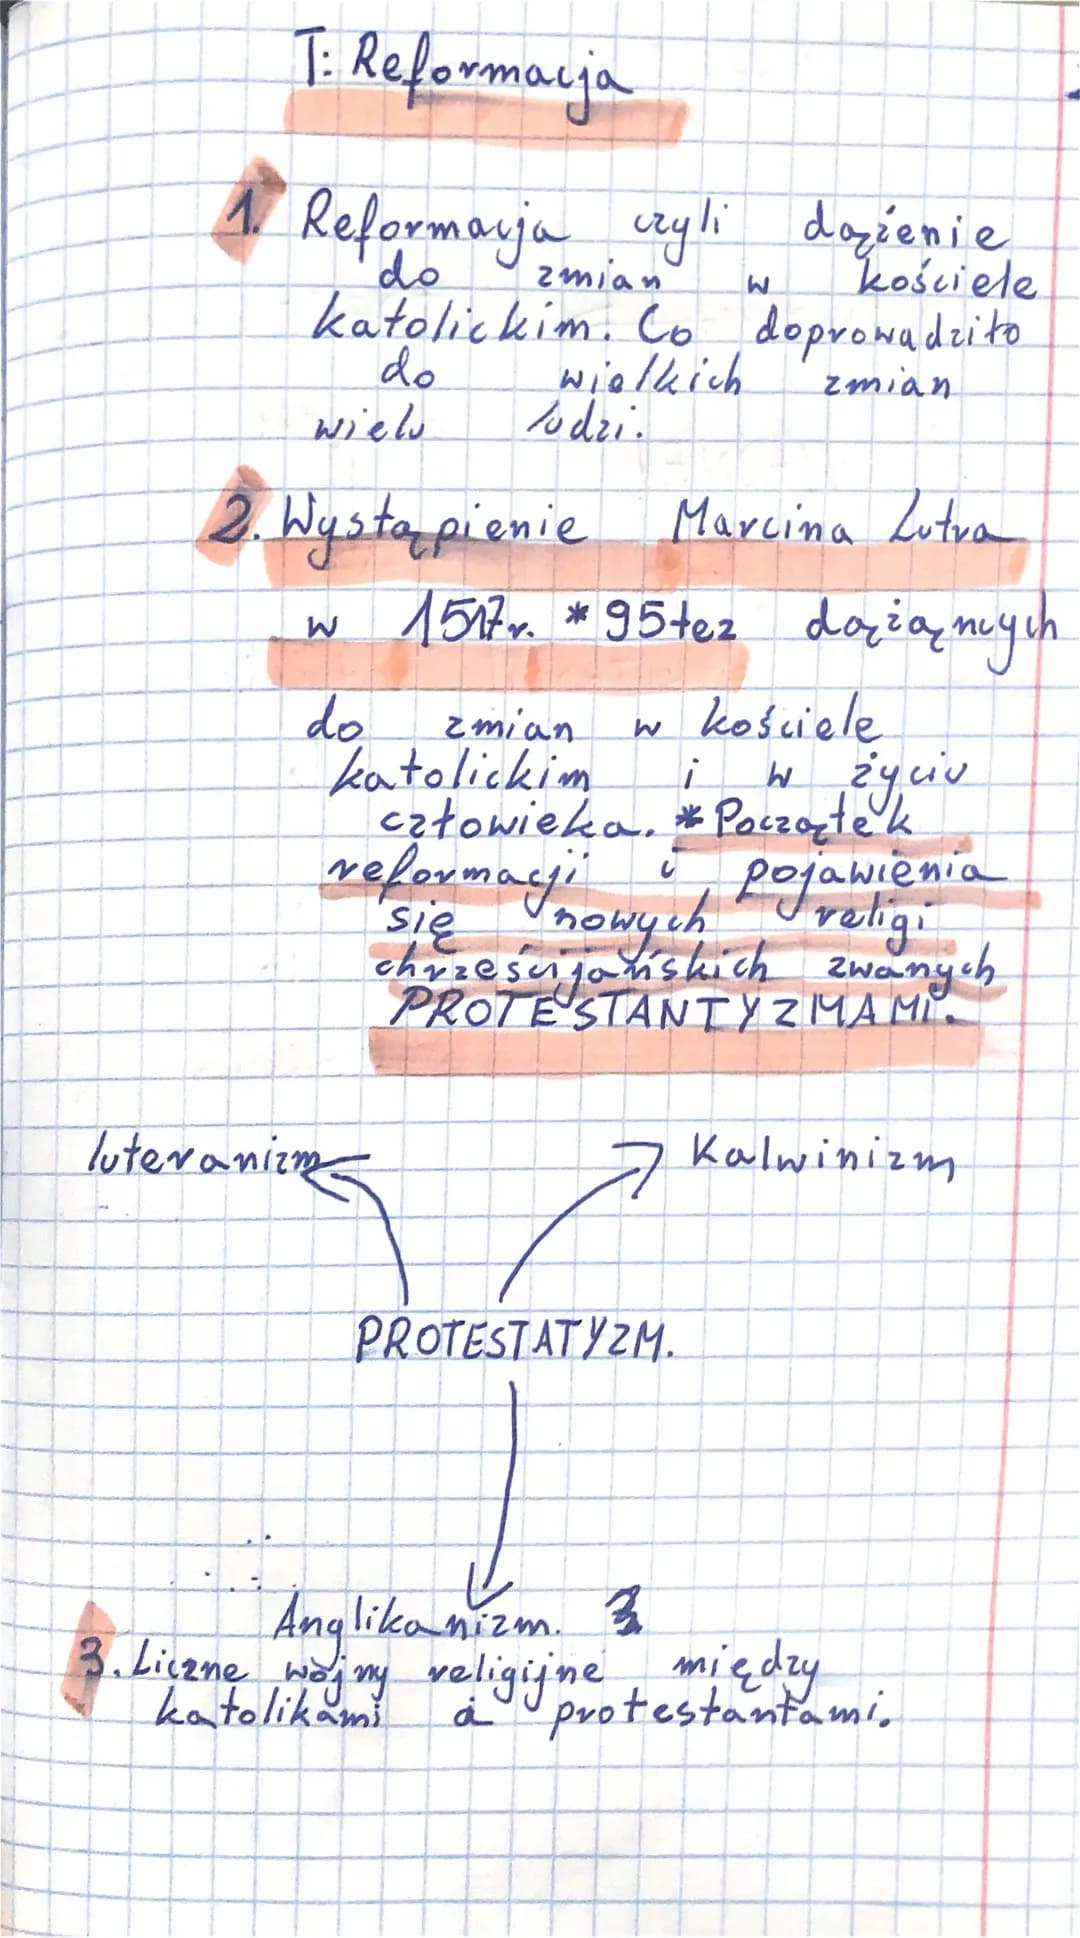 T: Reformacja
1. Reformacja czyli dążenie
do zmian w kościele
katolickim. Co doprowadziło
do wielkich zmian
wielu ludzi.
2. Wystąpienie Marcina Lutra
w 1517r. * 95tez dążąncych
do zmian w kościele
katolickim i w życiu
człowieka. * Początek
reformacji i pojawienia
się nowych religi
chrześcijańskich zwanych
PROTESTANTYZMAMI.
luteranizm Kalwinizm
PROTESTATYZM.
Anglikanizm.
3. Liczne wojny religijne między
katolikami a protestantami.